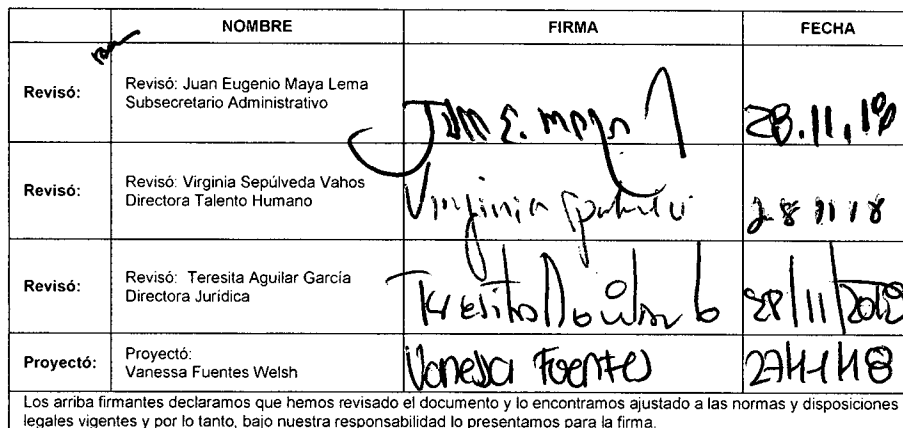 NOMBRE FIRMA FECHA
Revisó: Revisó: Juan Eugenio Maya Lema
Subsecretario Administrativo
Juan E. Maya 28.11.18
Revisó: Revisó: Virginia Sepúlveda Vahos
Directora Talento Humano
Virginia 28 11 18
Revisó: Revisó: Teresita Aguilar García
Directora Jurídica
Teresita Aguilar G 28/11/2018
Proyectó: Proyectó:
Vanessa Fuentes Welsh
Vanessa Fuentes 27-11-18
Los arriba firmantes declaramos que hemos revisado el documento y lo encontramos ajustado a las normas y disposiciones
legales vigentes y por lo tanto, bajo nuestra responsabilidad lo presentamos para la firma.